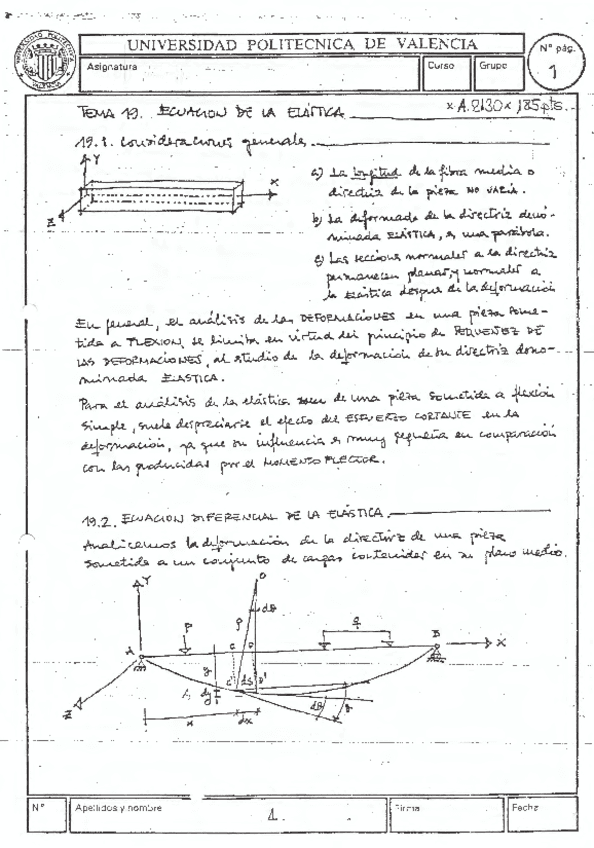 UNIVERSIDAD POLITECNICA DE VALENCIA
Asignatura
Curso
Grupo
Nº pág.
1
TEMA 19. ECUACION DE LA ELÁSTICA
× A.2130 × 185 pts.
19.1. Consideraciones generales
Y
X
Z
a) La longitud de la fibra media o
directriz de la pieza NO VARIA.
b) La deformada de la directriz deno-
minada ELÁSTICA, es una parábola.
c) Las secciones normales a la directriz
permanecen planas, y normales a
la elástica despues de la deformación
En general, el análisis de las DEFORMACIONES en una pieza some-
tida a FLEXION, se limita en virtud del principio de PEQUEÑEZ DE
LAS DEFORMACIONES, al estudio de la deformación de su directriz deno-
minada ELASTICA.
Para el análisis de la elástica de una pieza sometida a flexión
simple, suele despreciarse el efecto del ESFUERZO CORTANTE en la
deformación, ya que su influencia es muy pequeña en comparación
con las producidas por el MOMENTO FLECTOR.
19.2. ECUACION DIFERENCIAL DE LA ELÁSTICA
Analicemos la deformación de la directriz de una pieza
sometida a un conjunto de cargas contenidas en su plano medio.
Y
O
dθ
ρ
P
q
A
B
X
y
ds
dy
Z
dθ
x
dx
Nº
Apellidos y nombre
1.
Firma
Fecha